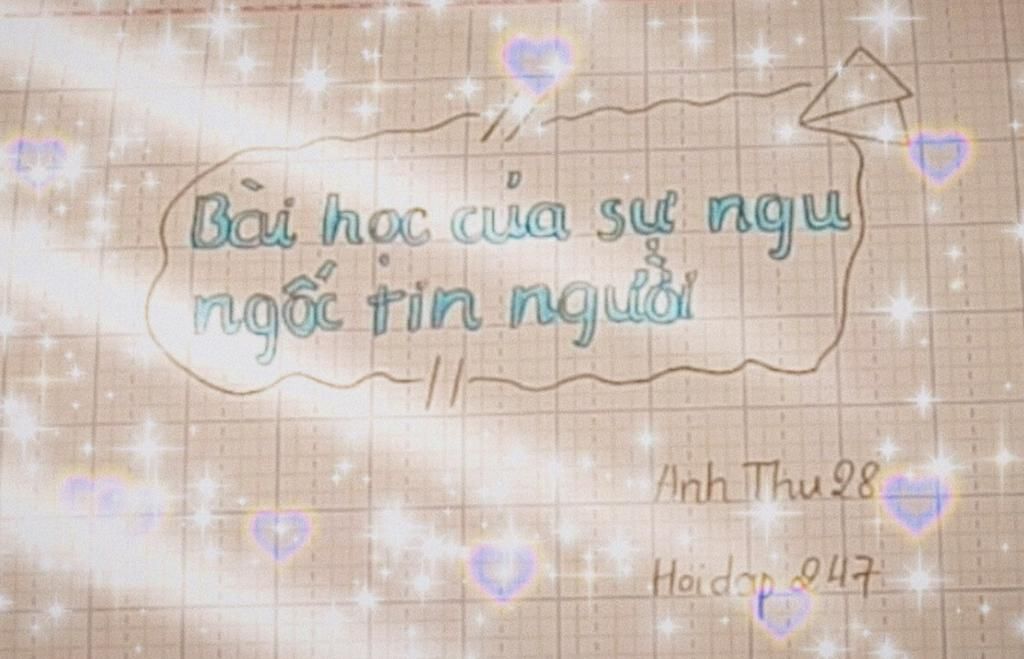 Bài học của sự ngu
ngốc tin người
Anh Thu 28
Hoidap 247